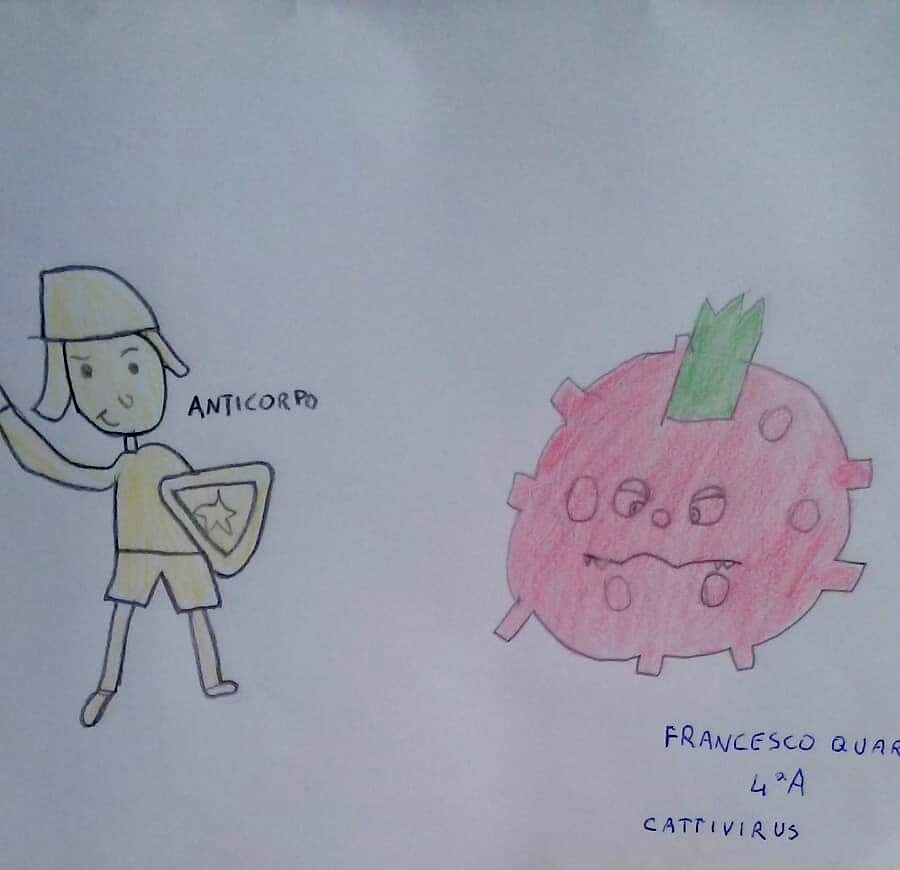 ANTICORPO
FRANCESCO
4ªA
CATTIVIRUS